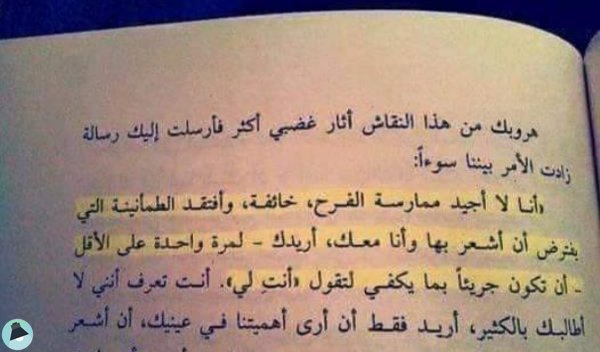 هروبك من هذا النقاش أثار غضبي أكثر فأرسلت إليك رسالة
زادت الأمر بيننا سوءاً:
«أنا لا أجيد ممارسة الفرح، خائفة، وأفتقد الطمأنينة التي
يفترض أن أشعر بها وأنا معك، أريدك - لمرة واحدة على الأقل
- أن تكون جريئاً بما يكفي لتقول «أنتِ لي». أنت تعرف أنني لا
أطالبك بالكثير، أريد فقط أن أرى أهميتنا في عينيك، أن أشعر